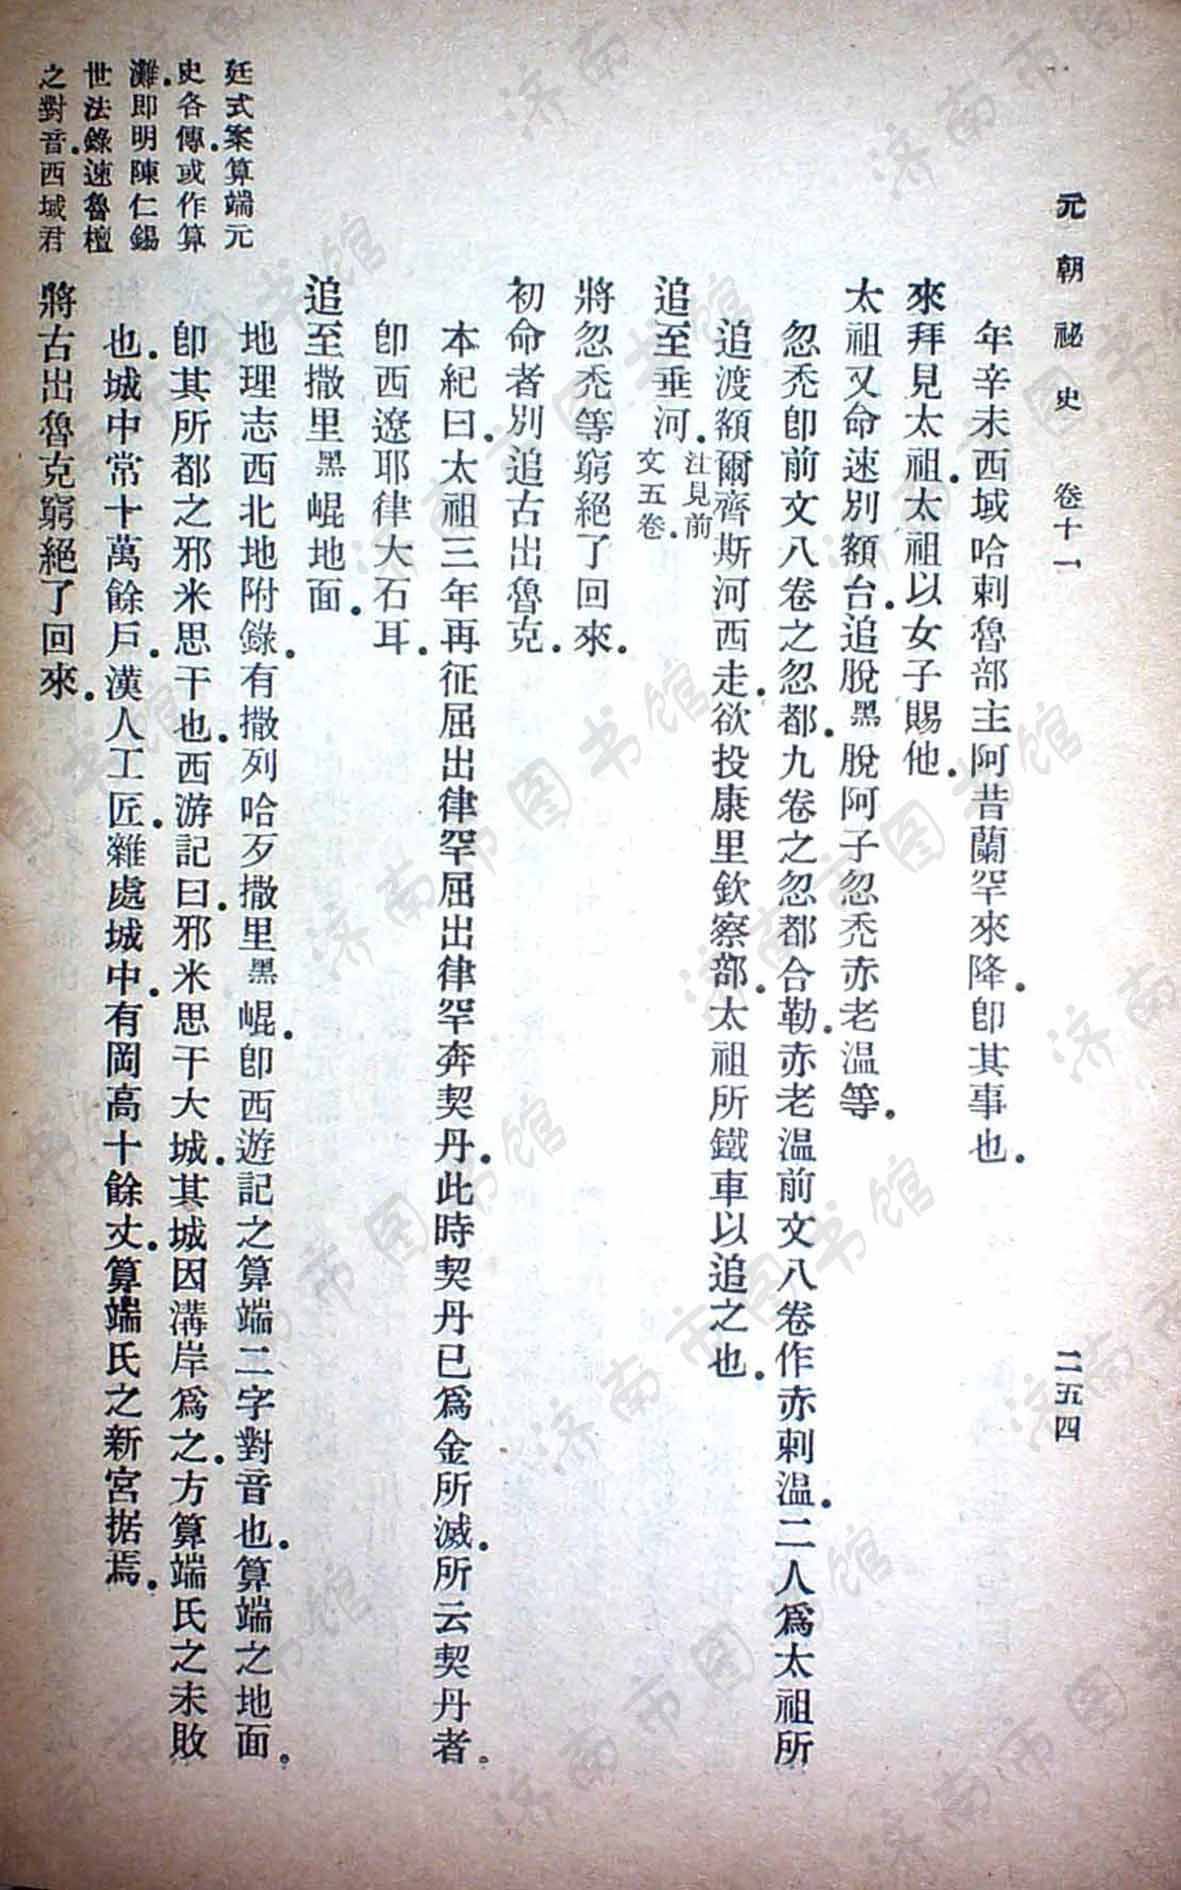 元朝祕史 卷十一 二五四
年辛未西域哈剌魯部主阿昔蘭罕來降.卽其事也.
來拜見太祖.太祖以女子賜他.
太祖又命速別額台.追脫黑脫阿子忽禿赤老溫等.
忽禿卽前文八卷之忽都.九卷之忽都合勒.赤老溫前文八卷作赤剌溫.二人爲太祖所
追渡額爾齊斯河西走.欲投康里欽察部.太祖所鐵車以追之也.
追至垂河.注見前
文五卷.
將忽禿等窮絕了回來.
初命者別追古出魯克.
本紀曰.太祖三年再征屈出律罕屈出律罕奔契丹.此時契丹已爲金所滅.所云契丹者.
卽西遼耶律大石耳.
追至撒里黑崐地面.
地理志西北地附錄.有撒列哈歹撒里黑崐.卽西遊記之算端二字對音也.算端之地面.
卽其所都之邪米思干也.西游記曰.邪米思干大城.其城因溝岸爲之.方算端氏之未敗
也.城中常十萬餘戶.漢人工匠.雜處城中.有岡高十餘丈.算端氏之新宮据焉.
將古出魯克窮絕了回來.
廷式案算端元
史各傳.或作算
灘.即明陳仁錫
世法錄速魯檀
之對音.西域君
济南市图书馆